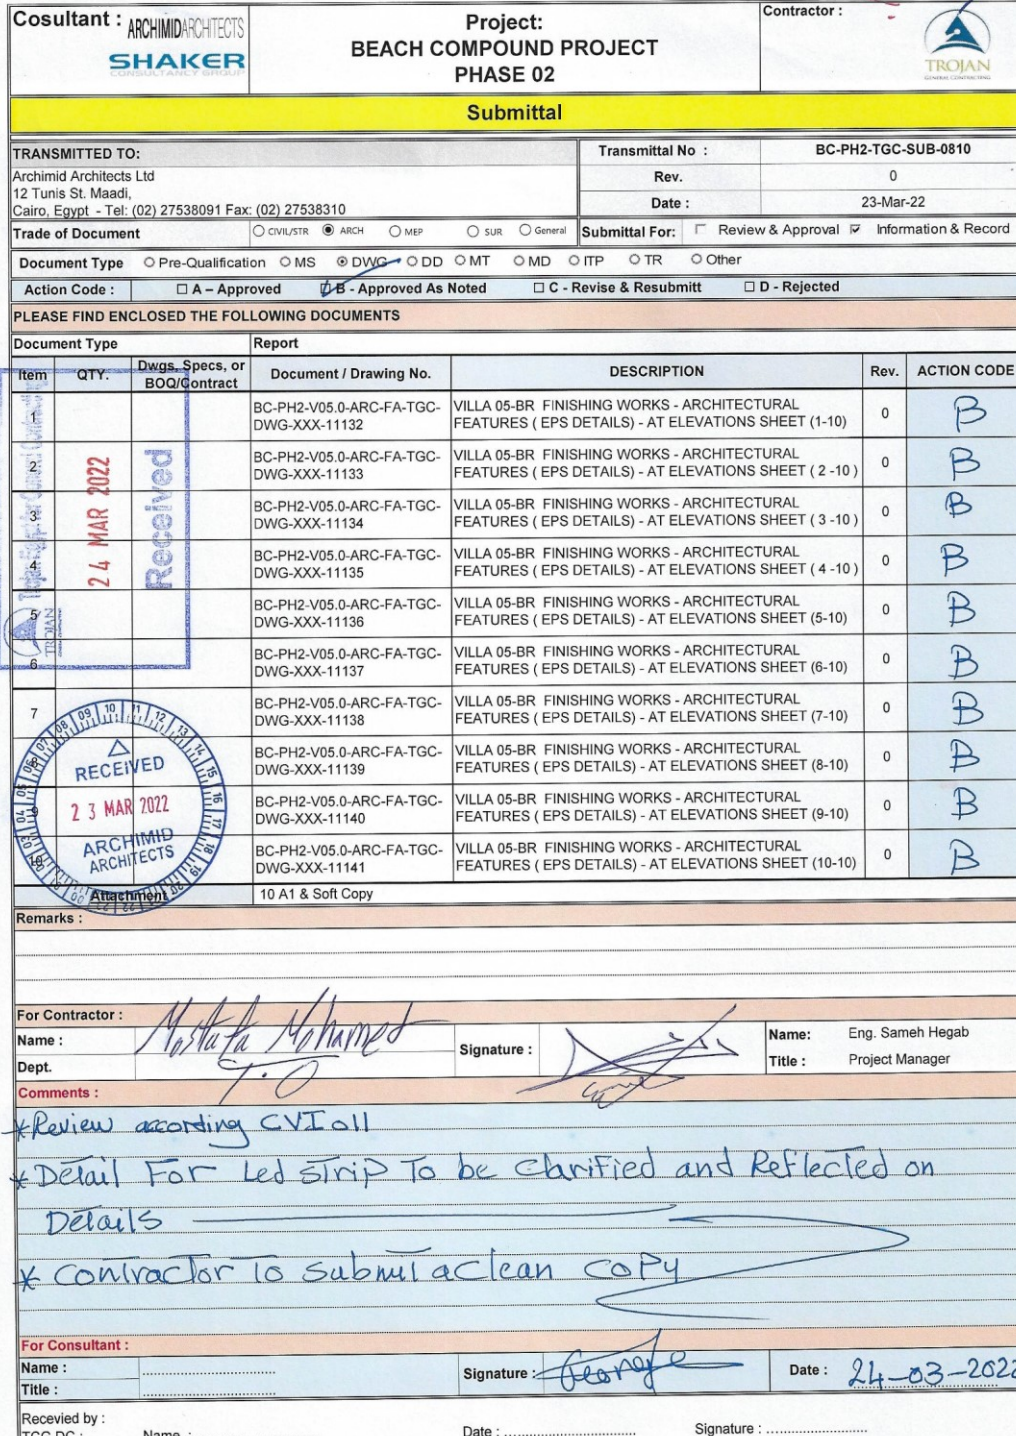 Cosultant : ARCHIMIDARCHITECTS
SHAKER
CONSULTANCY GROUP
Project:
BEACH COMPOUND PROJECT
PHASE 02
Contractor :
TROJAN
GENERAL CONTRACTING
Submittal
TRANSMITTED TO:
Archimid Architects Ltd
12 Tunis St. Maadi,
Cairo, Egypt - Tel: (02) 27538091 Fax: (02) 27538310
Transmittal No : BC-PH2-TGC-SUB-0810
Rev. 0
Date : 23-Mar-22
Trade of Document CIVIL/STR ARCH MEP SUR General Submittal For: Review & Approval Information & Record
Document Type Pre-Qualification MS DWG DD MT MD ITP TR Other
Action Code : A – Approved B - Approved As Noted C - Revise & Resubmitt D - Rejected
PLEASE FIND ENCLOSED THE FOLLOWING DOCUMENTS
Document Type Report
Item QTY. Dwgs, Specs, or BOQ/Contract Document / Drawing No. DESCRIPTION Rev. ACTION CODE
1 BC-PH2-V05.0-ARC-FA-TGC- VILLA 05-BR FINISHING WORKS - ARCHITECTURAL 0 B
DWG-XXX-11132 FEATURES ( EPS DETAILS) - AT ELEVATIONS SHEET (1-10)
2 BC-PH2-V05.0-ARC-FA-TGC- VILLA 05-BR FINISHING WORKS - ARCHITECTURAL 0 B
DWG-XXX-11133 FEATURES ( EPS DETAILS) - AT ELEVATIONS SHEET ( 2 -10 )
3 BC-PH2-V05.0-ARC-FA-TGC- VILLA 05-BR FINISHING WORKS - ARCHITECTURAL 0 B
DWG-XXX-11134 FEATURES ( EPS DETAILS) - AT ELEVATIONS SHEET ( 3 -10 )
4 BC-PH2-V05.0-ARC-FA-TGC- VILLA 05-BR FINISHING WORKS - ARCHITECTURAL 0 B
DWG-XXX-11135 FEATURES ( EPS DETAILS) - AT ELEVATIONS SHEET ( 4 -10 )
5 BC-PH2-V05.0-ARC-FA-TGC- VILLA 05-BR FINISHING WORKS - ARCHITECTURAL 0 B
DWG-XXX-11136 FEATURES ( EPS DETAILS) - AT ELEVATIONS SHEET (5-10)
6 BC-PH2-V05.0-ARC-FA-TGC- VILLA 05-BR FINISHING WORKS - ARCHITECTURAL 0 B
DWG-XXX-11137 FEATURES ( EPS DETAILS) - AT ELEVATIONS SHEET (6-10)
7 BC-PH2-V05.0-ARC-FA-TGC- VILLA 05-BR FINISHING WORKS - ARCHITECTURAL 0 B
DWG-XXX-11138 FEATURES ( EPS DETAILS) - AT ELEVATIONS SHEET (7-10)
8 BC-PH2-V05.0-ARC-FA-TGC- VILLA 05-BR FINISHING WORKS - ARCHITECTURAL 0 B
DWG-XXX-11139 FEATURES ( EPS DETAILS) - AT ELEVATIONS SHEET (8-10)
9 BC-PH2-V05.0-ARC-FA-TGC- VILLA 05-BR FINISHING WORKS - ARCHITECTURAL 0 B
DWG-XXX-11140 FEATURES ( EPS DETAILS) - AT ELEVATIONS SHEET (9-10)
10 BC-PH2-V05.0-ARC-FA-TGC- VILLA 05-BR FINISHING WORKS - ARCHITECTURAL 0 B
DWG-XXX-11141 FEATURES ( EPS DETAILS) - AT ELEVATIONS SHEET (10-10)
24 MAR 2022
Received
TROJAN
RECEIVED
23 MAR 2022
ARCHIMID
ARCHITECTS
Attachment 10 A1 & Soft Copy
Remarks :
For Contractor :
Name : Mostafa Mohamed Signature : Name: Eng. Sameh Hegab
Dept. T.O Title : Project Manager
Comments :
* Review according CVI 011
* Detail For Led strip To be Clarified and Reflected on
Details
* Contractor To Submit a Clean Copy
For Consultant :
Name : Signature : Date : 24-03-2022
Title :
Recevied by :
TGC DC : Name : Date : Signature :